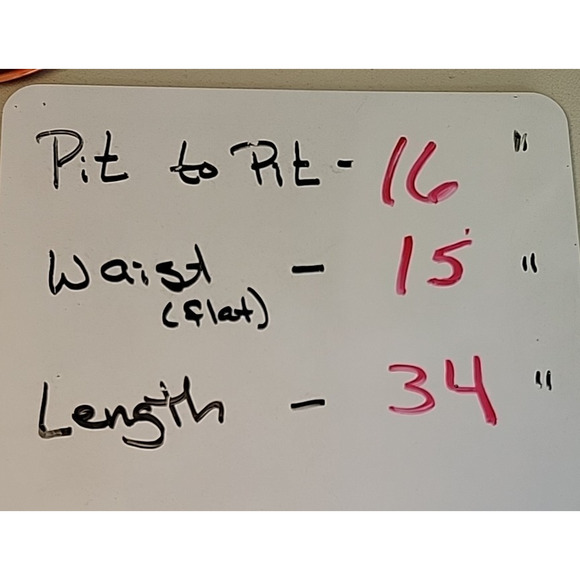 Pit to Pit - 16 "
Waist - 15 "
(flat)
Length - 34 "